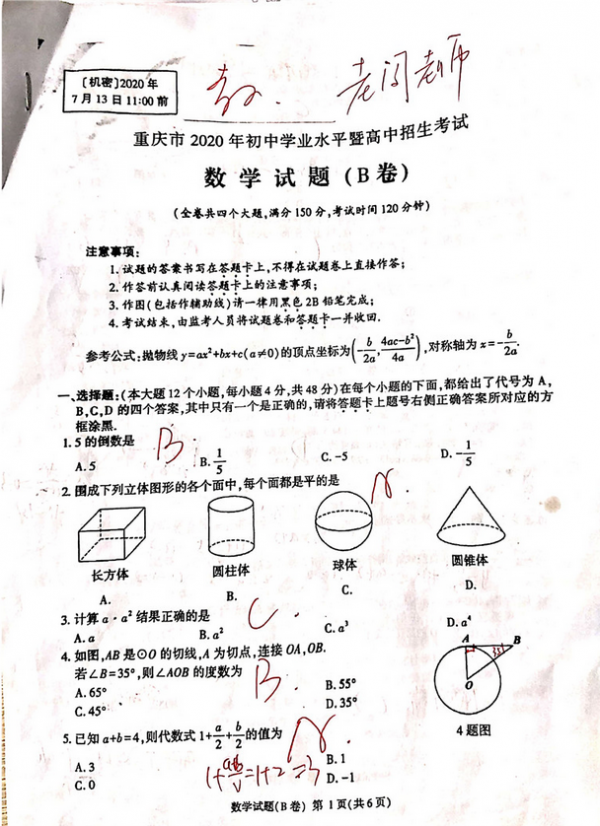 〔机密〕2020年
7月13日11:00前
老闯老师
重庆市2020年初中学业水平暨高中招生考试
数学试题(B卷)
(全卷共四个大题,满分150分,考试时间120分钟)
注意事项:
1.试题的答案书写在答题卡上,不得在试题卷上直接作答;
2.作答前认真阅读答题卡上的注意事项;
3.作图(包括作辅助线)请一律用黑色2B铅笔完成;
4.考试结束,由监考人员将试题卷和答题卡一并收回.
参考公式:抛物线y=ax²+bx+c(a≠0)的顶点坐标为(-b/2a,(4ac-b²)/4a),对称轴为x=-b/2a.
一、选择题:(本大题12个小题,每小题4分,共48分)在每个小题的下面,都给出了代号为A,
B,C,D的四个答案,其中只有一个是正确的,请将答题卡上题号右侧正确答案所对应的方
框涂黑.
1.5的倒数是 B
A.5 B.1/5 C.-5 D.-1/5
2.围成下列立体图形的各个面中,每个面都是平的是 A.
长方体 圆柱体 球体 圆锥体
A. B. C. D.
3.计算a·a²结果正确的是 C.
A.a B.a² C.a³ D.a⁴
4.如图,AB是⊙O的切线,A为切点,连接OA,OB.
若∠B=35°,则∠AOB的度数为 B.
A.65° B.55°
C.45° D.35°
A B
35°
O
4题图
5.已知a+b=4,则代数式1+a/2+b/2的值为 A.
A.3 B.1
C.0 D.-1
1+(a+b)/2=1+2=3
数学试题(B卷) 第1页(共6页)